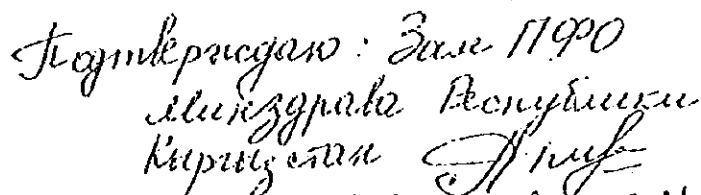 Подтверждаю: Зам ПФО
Минздрава Республики
Кыргызстан